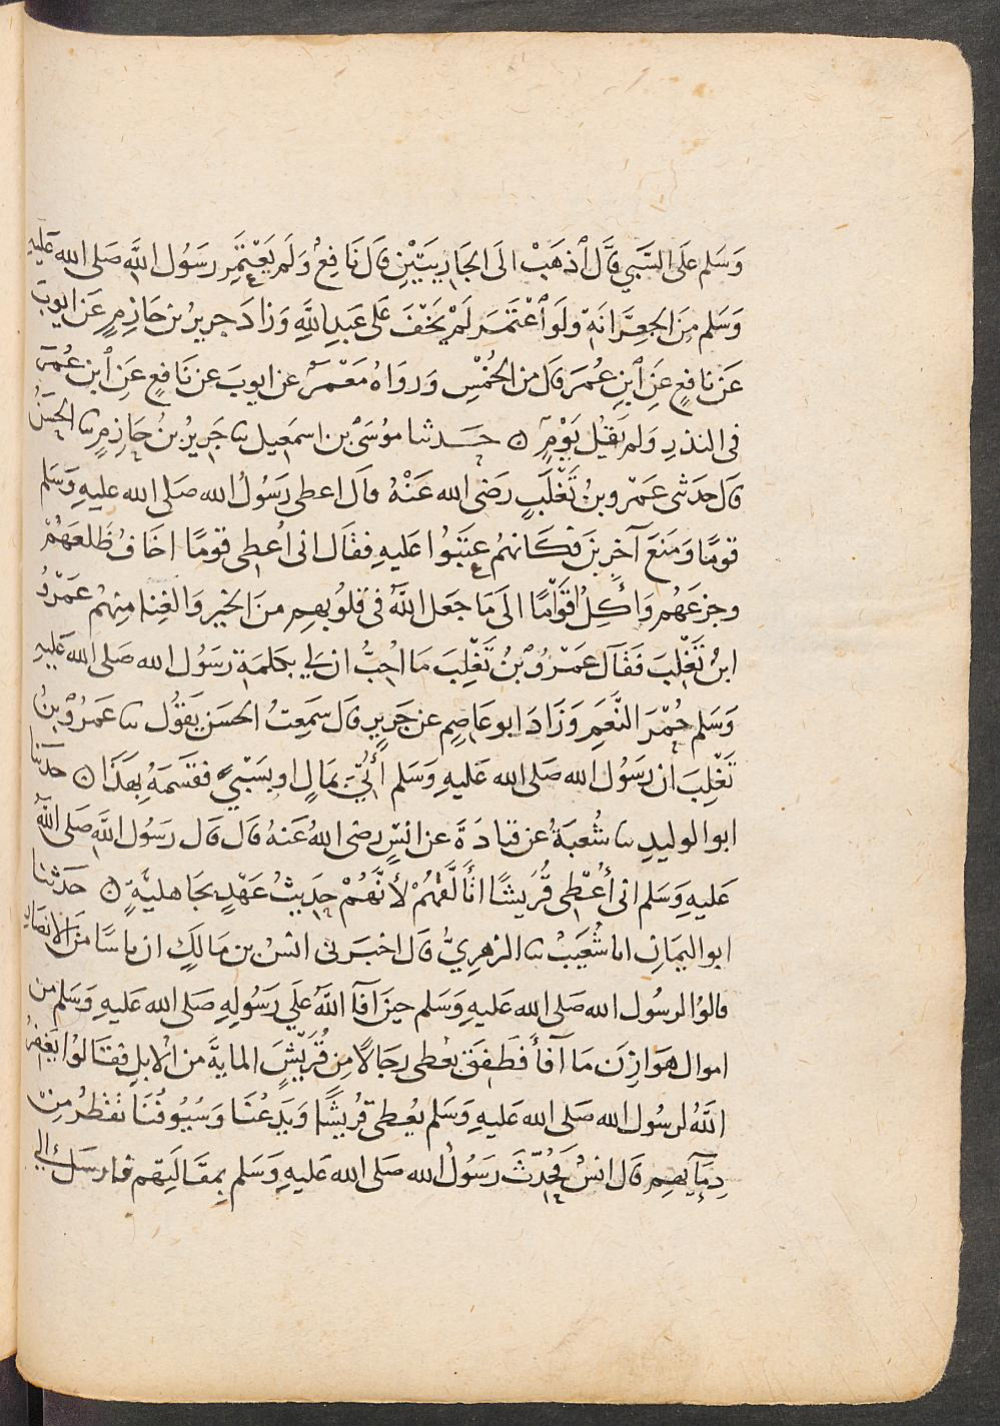 وَسَلم عَلَى السَّبيِ قَالَ ٱذهَبْ الَى الجَارِيَتَيْنِ قَالَ نَافِعُ وَلَم يَعْتَمِر رسَوُل اللَّه صَلى الله عَليهِ
وَسَلم مِنَ الجِعِرَّانَةِ وَلَو ٱعْتَمَر لَمْ يَخْفَ عَلى عَبدِ اللَّهِ وَزادَ جرير بْن حَازِمٍ عَن ايوبَ
عَن نافعٍ عَنِ ٱبنِ عُمَرَ قَال من الخُمْسِ وَروَاهُ مَعْمَرٌ عن ايوبَ عن نَافعٍ عَنِ ٱبن عُمَرَ
فى النذرِ وَلم يَقُلْ يَوْمٍ ۞ حَدثنا موُسَى بن اسمَعِيل نا جَرِيرُ بْنُ حَازِمٍ نا الحسَنُ
قَال حَدثنى عَمْرو بنُ تَغْلَبٍ رَضى الله عَنْهُ قال اعطى رَسُولُ الله صَلى الله عليهِ وَسَلم
قومًا وَمَنعَ آخرِينَ فكَانهُم عتَبُوا عَليهِ فقَال انى اُعطِى قومًا اخَافُ ظَلعَهُمْ
وجزعَهُم وَاَكِلُ اقوَامًا الَى مَا جَعل اللَّهُ فى قلُوبهِم منَ الخير وَالغِنا مِنهُم عَمْرُو
ابنُ تَغْلِبَ فَقَالَ عَمْرُو بْنُ تَغْلِبَ مَا اُحِبُّ ان لي بكلمَةِ رَسُول الله صَلى الله عَليهِ
وَسَلم حُمْرَ النَّعَمِ وَزَادَ ابو عَاصِمٍ عن جَرِيرٍ قَال سَمِعتُ الحسَنَ يقوُل نا عَمرُو بْنُ
تَغْلِبَ اَن رسَوُل الله صَلى الله عَليهِ وَسَلم اُتِيَ بمَالٍ او بسَبْيٍ فقسَمَهُ بِهَذَا ۞ حدثنا
ابو الوليدِ نا شُعبَةُ عن قتادَةَ عن انسٍ رضى اللهُ عَنهُ قَال قَال رسَوُل اللَّه صَلى اللَّه
عَليهِ وَسَلم انى اُعْطِى قُرَيشًا اَتَأَلَّفهُمْ لأَنَّهُمْ حَدِيثُ عَهْدٍ بجَاهليَّةٍ ۞ حَدثنا
ابو اليمَانِ انا شُعَيبْ نا الزهرِيُّ قَال اخبَرنى انسُ بن مَالكٍ ان ناسًا منَ الانصَارِ
قالوُا لرسُول الله صَلى الله عَليهِ وَسَلم حينَ افَآ اللَّهُ عَلَى رَسُولِهِ صَلى الله عَليهِ وَسَلم من
اموال هوَازِنَ مَا آفأَ فَطَفِقَ يعُطى رجَالاً مِن قُرَيْشٍ المايةَ من الابلِ فقالوُا يَغفِرُ
اللَّهُ لرسُول الله صَلى الله عَليهِ وَسَلم يعُطى قُريشًا وَيَدعُنَا وَسُيُوفُنَا تقْطرُ مِنْ
دِمَآيهِم قَال انسٌ فحُدِّثَ رسَوُلُ الله صَلى الله عَليهِ وَسَلم بِمقَالَتِهم فارسَل الي